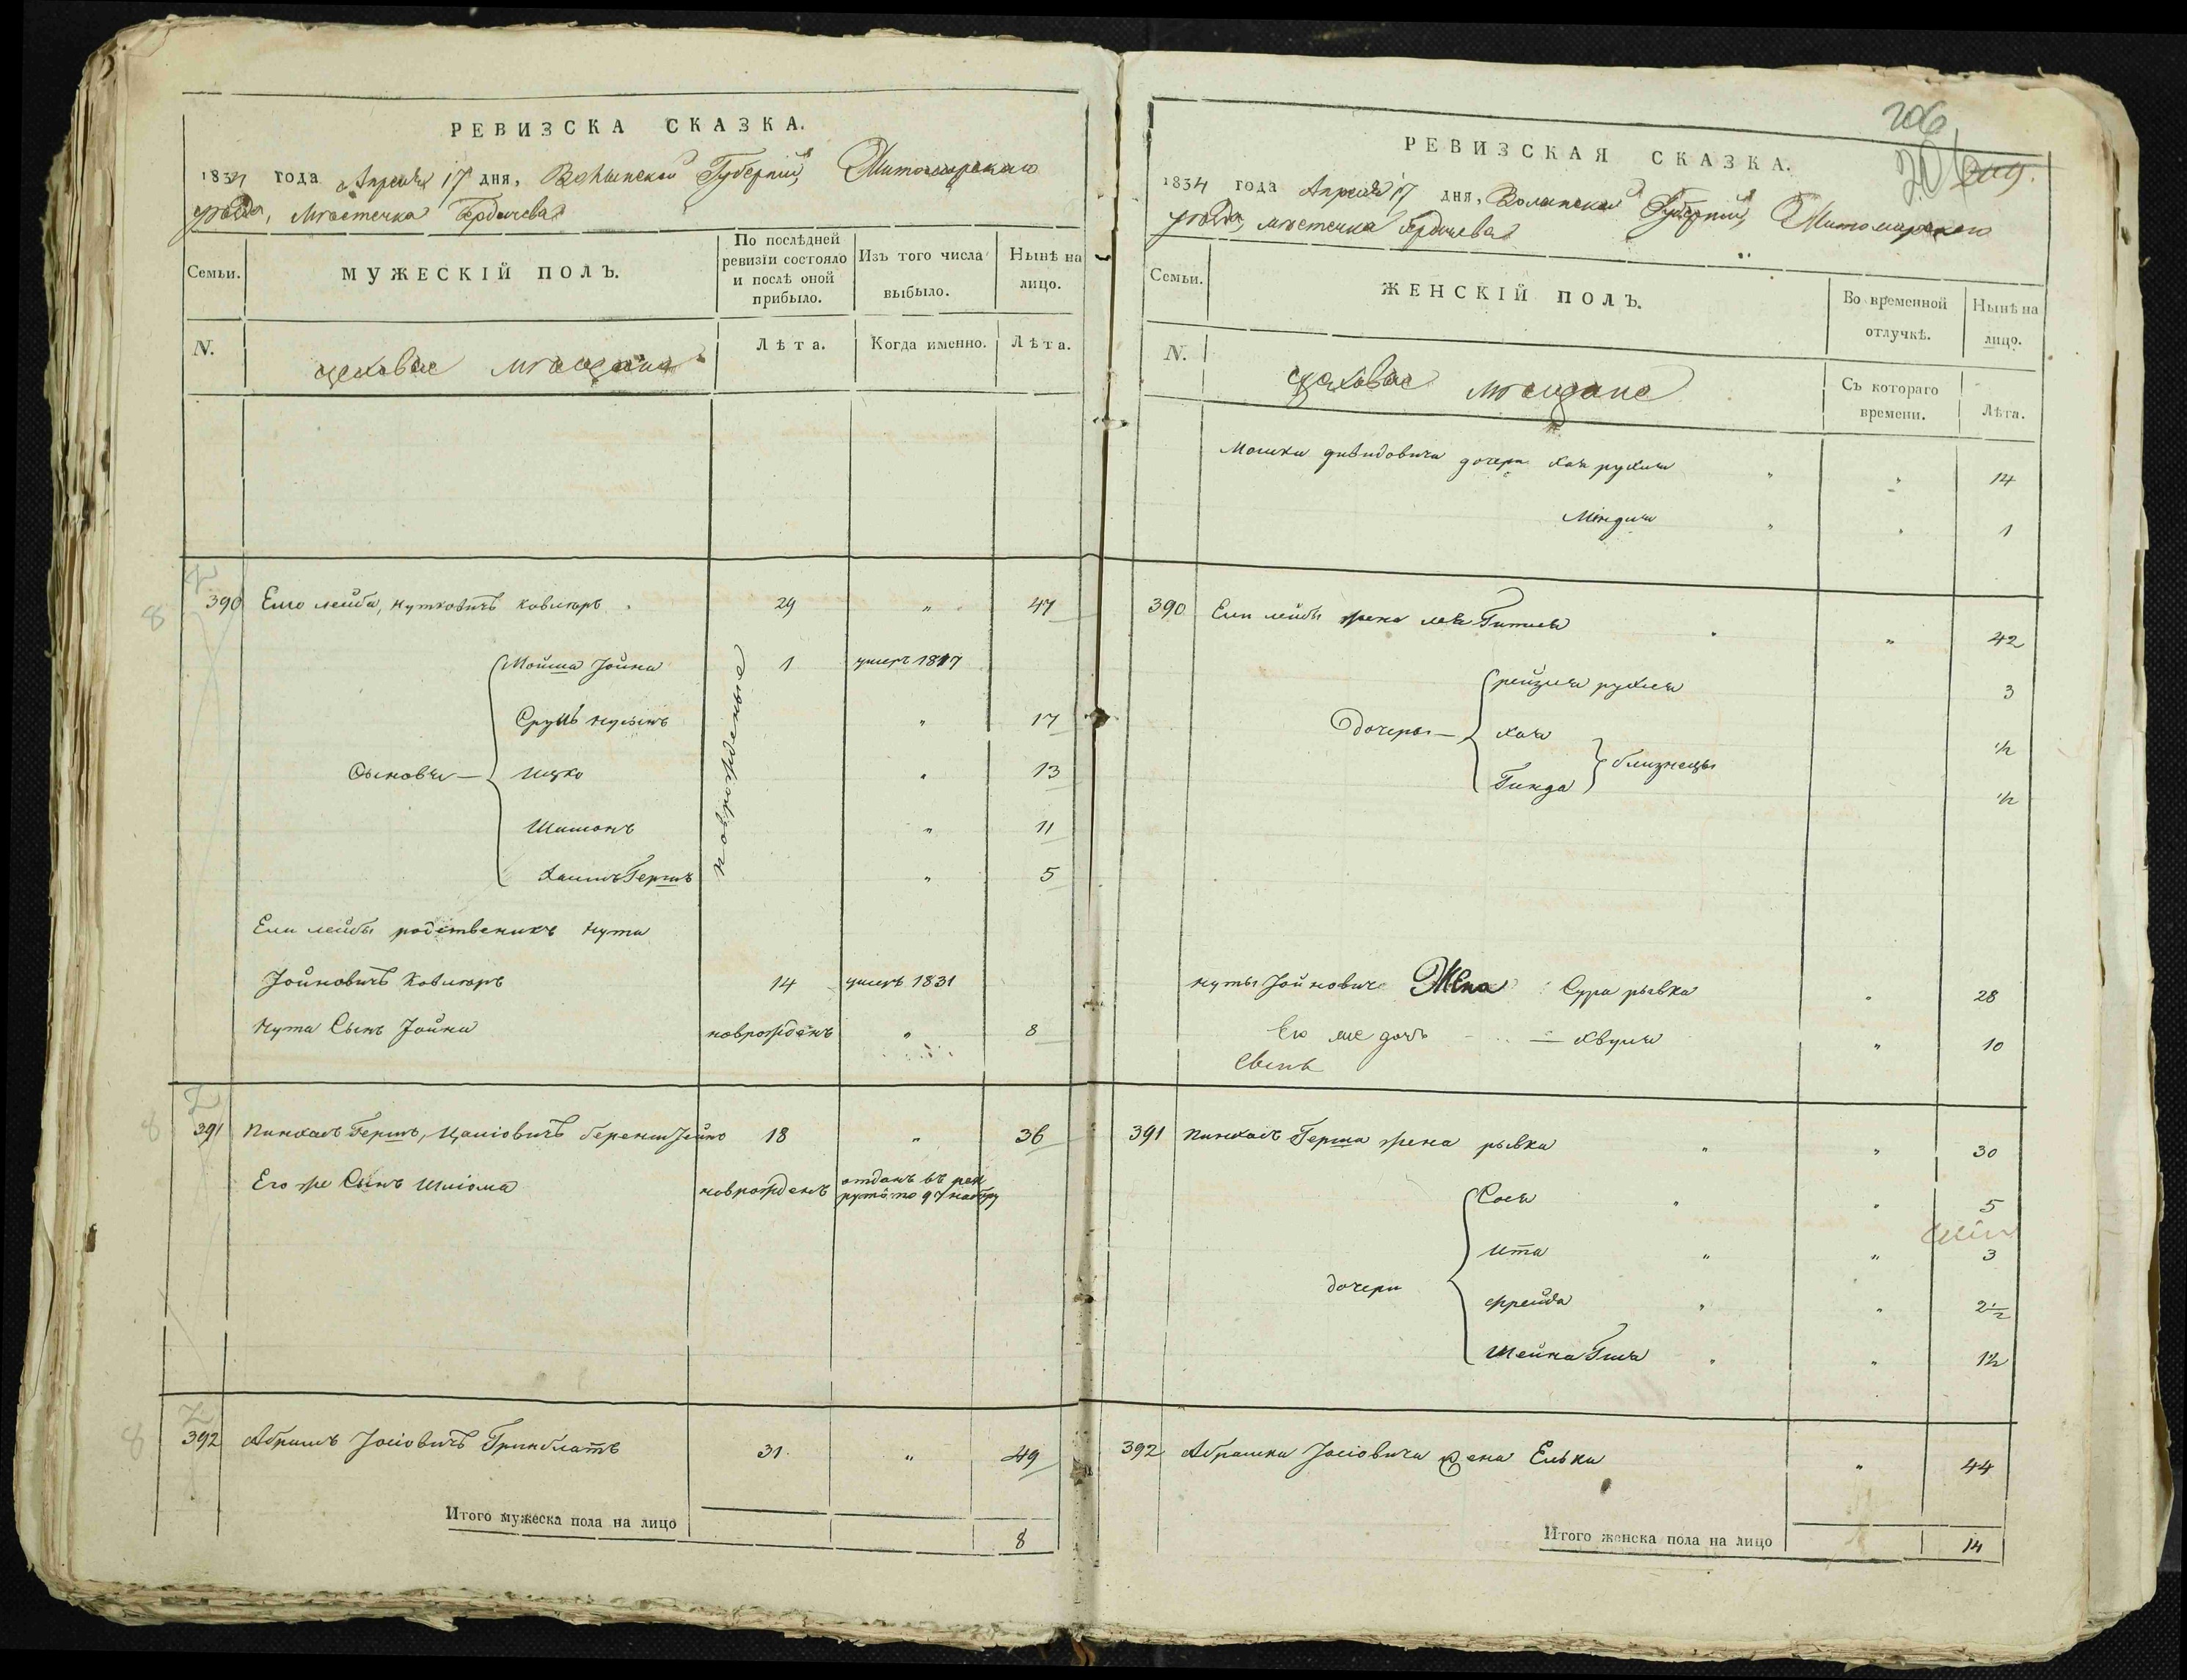 РЕВИЗСКА СКАЗКА.
1834 года Апреля 17 дня, Волынской Губерніи, Житомирскаго
уѣзда, Мѣстечка Бердичева
Семьи.
МУЖЕСКІЙ ПОЛЪ.
По послѣдней ревизіи состояло и послѣ оной прибыло.
Изъ того числа выбыло.
Нынѣ на лицо.
N.
цеховые мѣщане
Лѣта.
Когда именно.
Лѣта.
390 Елго лейба, нутковичъ ковлюръ 29 " 47
Мойша Іойна 1 умеръ 1817
Сруль " 17
Сыновья Ицко " 13
Шимонъ " 11
Хаимъ Гершъ " 5
новорожденые
Ели лейбы родственикъ Нута
Іойновичъ Ковлюръ 14 умеръ 1831
Нута Сынъ Іойна новрожденъ " 8
391 Пинхасъ Гершъ, 18 " 36
Его же Сынъ Шліома новрожденъ отданъ въ рек
руты по 97 набору
392 Абрамъ Іосіовичъ Гринблатъ 31 " 49
Итого мужеска пола на лицо 8
206
РЕВИЗСКАЯ СКАЗКА.
1834 года Апреля 17 дня, Волынской Губерніи, Житомирскаго
уѣзда, мѣстечка Бердичева
Семьи.
ЖЕНСКІЙ ПОЛЪ.
Во временной отлучкѣ.
Нынѣ на лицо.
N.
цеховые мѣщане
Съ котораго времени.
Лѣта.
Мошки дивидовича дочери Хая рухля " " 14
Миндля " " 1
390 Ели лейбы жена лея Гитля " " 42
рейзля рухля 3
Дочеры Хая 1/2
Гинда близнецы 1/2
нуты Іойновича Жена Сура рывка " 28
Его же дочь Хвуля " 10
Сынъ
391 Пинхасъ Герша жена рывка " " 30
Сося " " 5
Ита " " 3
дочери фрейда " " 2 1/2
Шейна Гиля " " 1 1/2
392 Абрамка Іосіовича жена Елька " 44
Итого женска пола на лицо 14